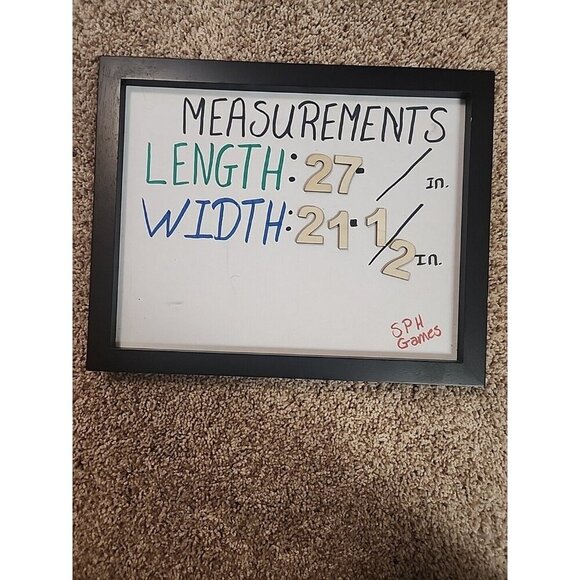 MEASUREMENTS
LENGTH: 27- / IN.
WIDTH: 21-1/2 IN.
SPH
Games